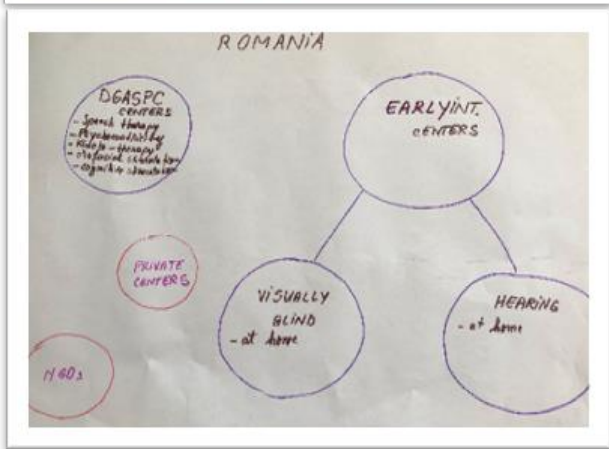 ROMANIA
DGASPC
CENTERS
- Speech therapy
- Psychomotricity
- Kineto-therapy
- orofacial stimulation
- cognitive stimulation
EARLY INT.
CENTERS
PRIVATE
CENTERS
VISUALLY
BLIND
- at home
HEARING
- at home
NGOs